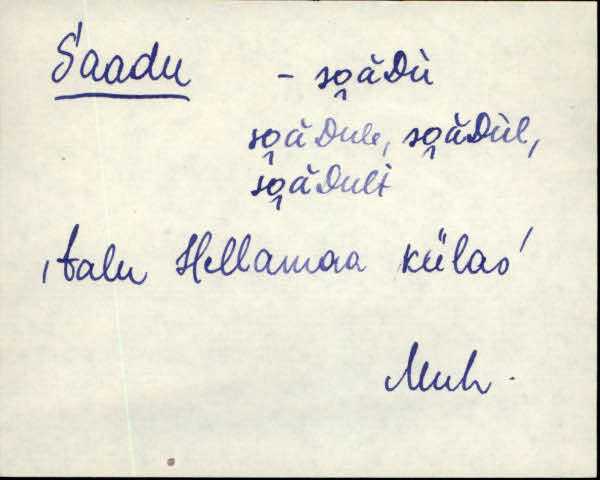 Saadu - so̭àDù
so̭àDule, so̭àDùl,
so̭àDult
'talu Hellamaa külas'
Muh.